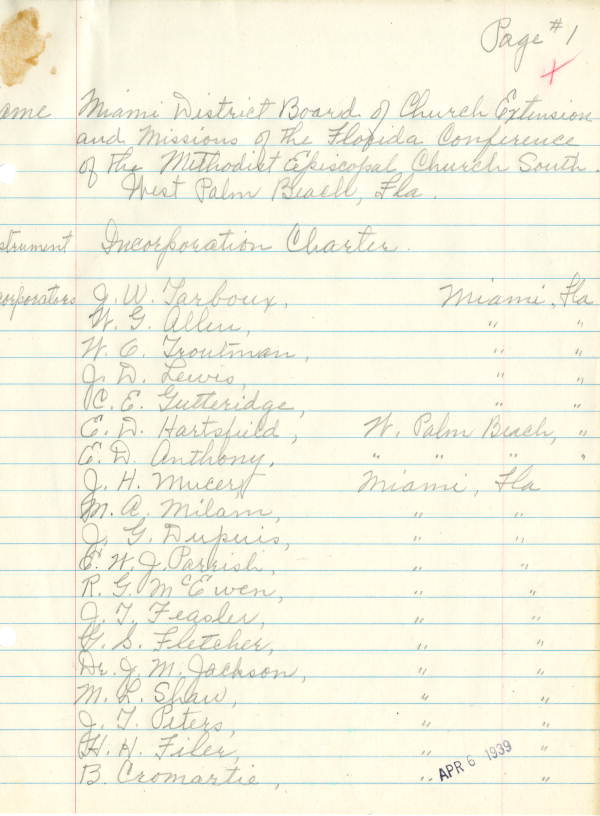 Page #1
ame Miami District Board of Church Extension
and Missions of the Florida Conference
of the Methodist Episcopal Church South.
West Palm Beach, Fla.
strument Incorporation Charter.
corporators J. W. Tarboux, Miami, Fla
W. G. Allen, " "
W. C. Troutman, " "
J. D. Lewis, " "
C. E. Gutteridge, " "
E. D. Hartsfield, W. Palm Beach, "
E. D. Anthony, " " " "
J. H. Mucer, Miami, Fla
M. A. Milam, " "
J. G. Dupuis, " "
E. W. J. Parrish, " "
R. G. McEwen, " "
J. T. Feaster, " "
G. S. Fletcher, " "
Dr. J. M. Jackson, " "
M. L. Shaw, " "
J. T. Peters, " "
H. H. Filer, " "
B. Cromartie, " "
APR 6 1939